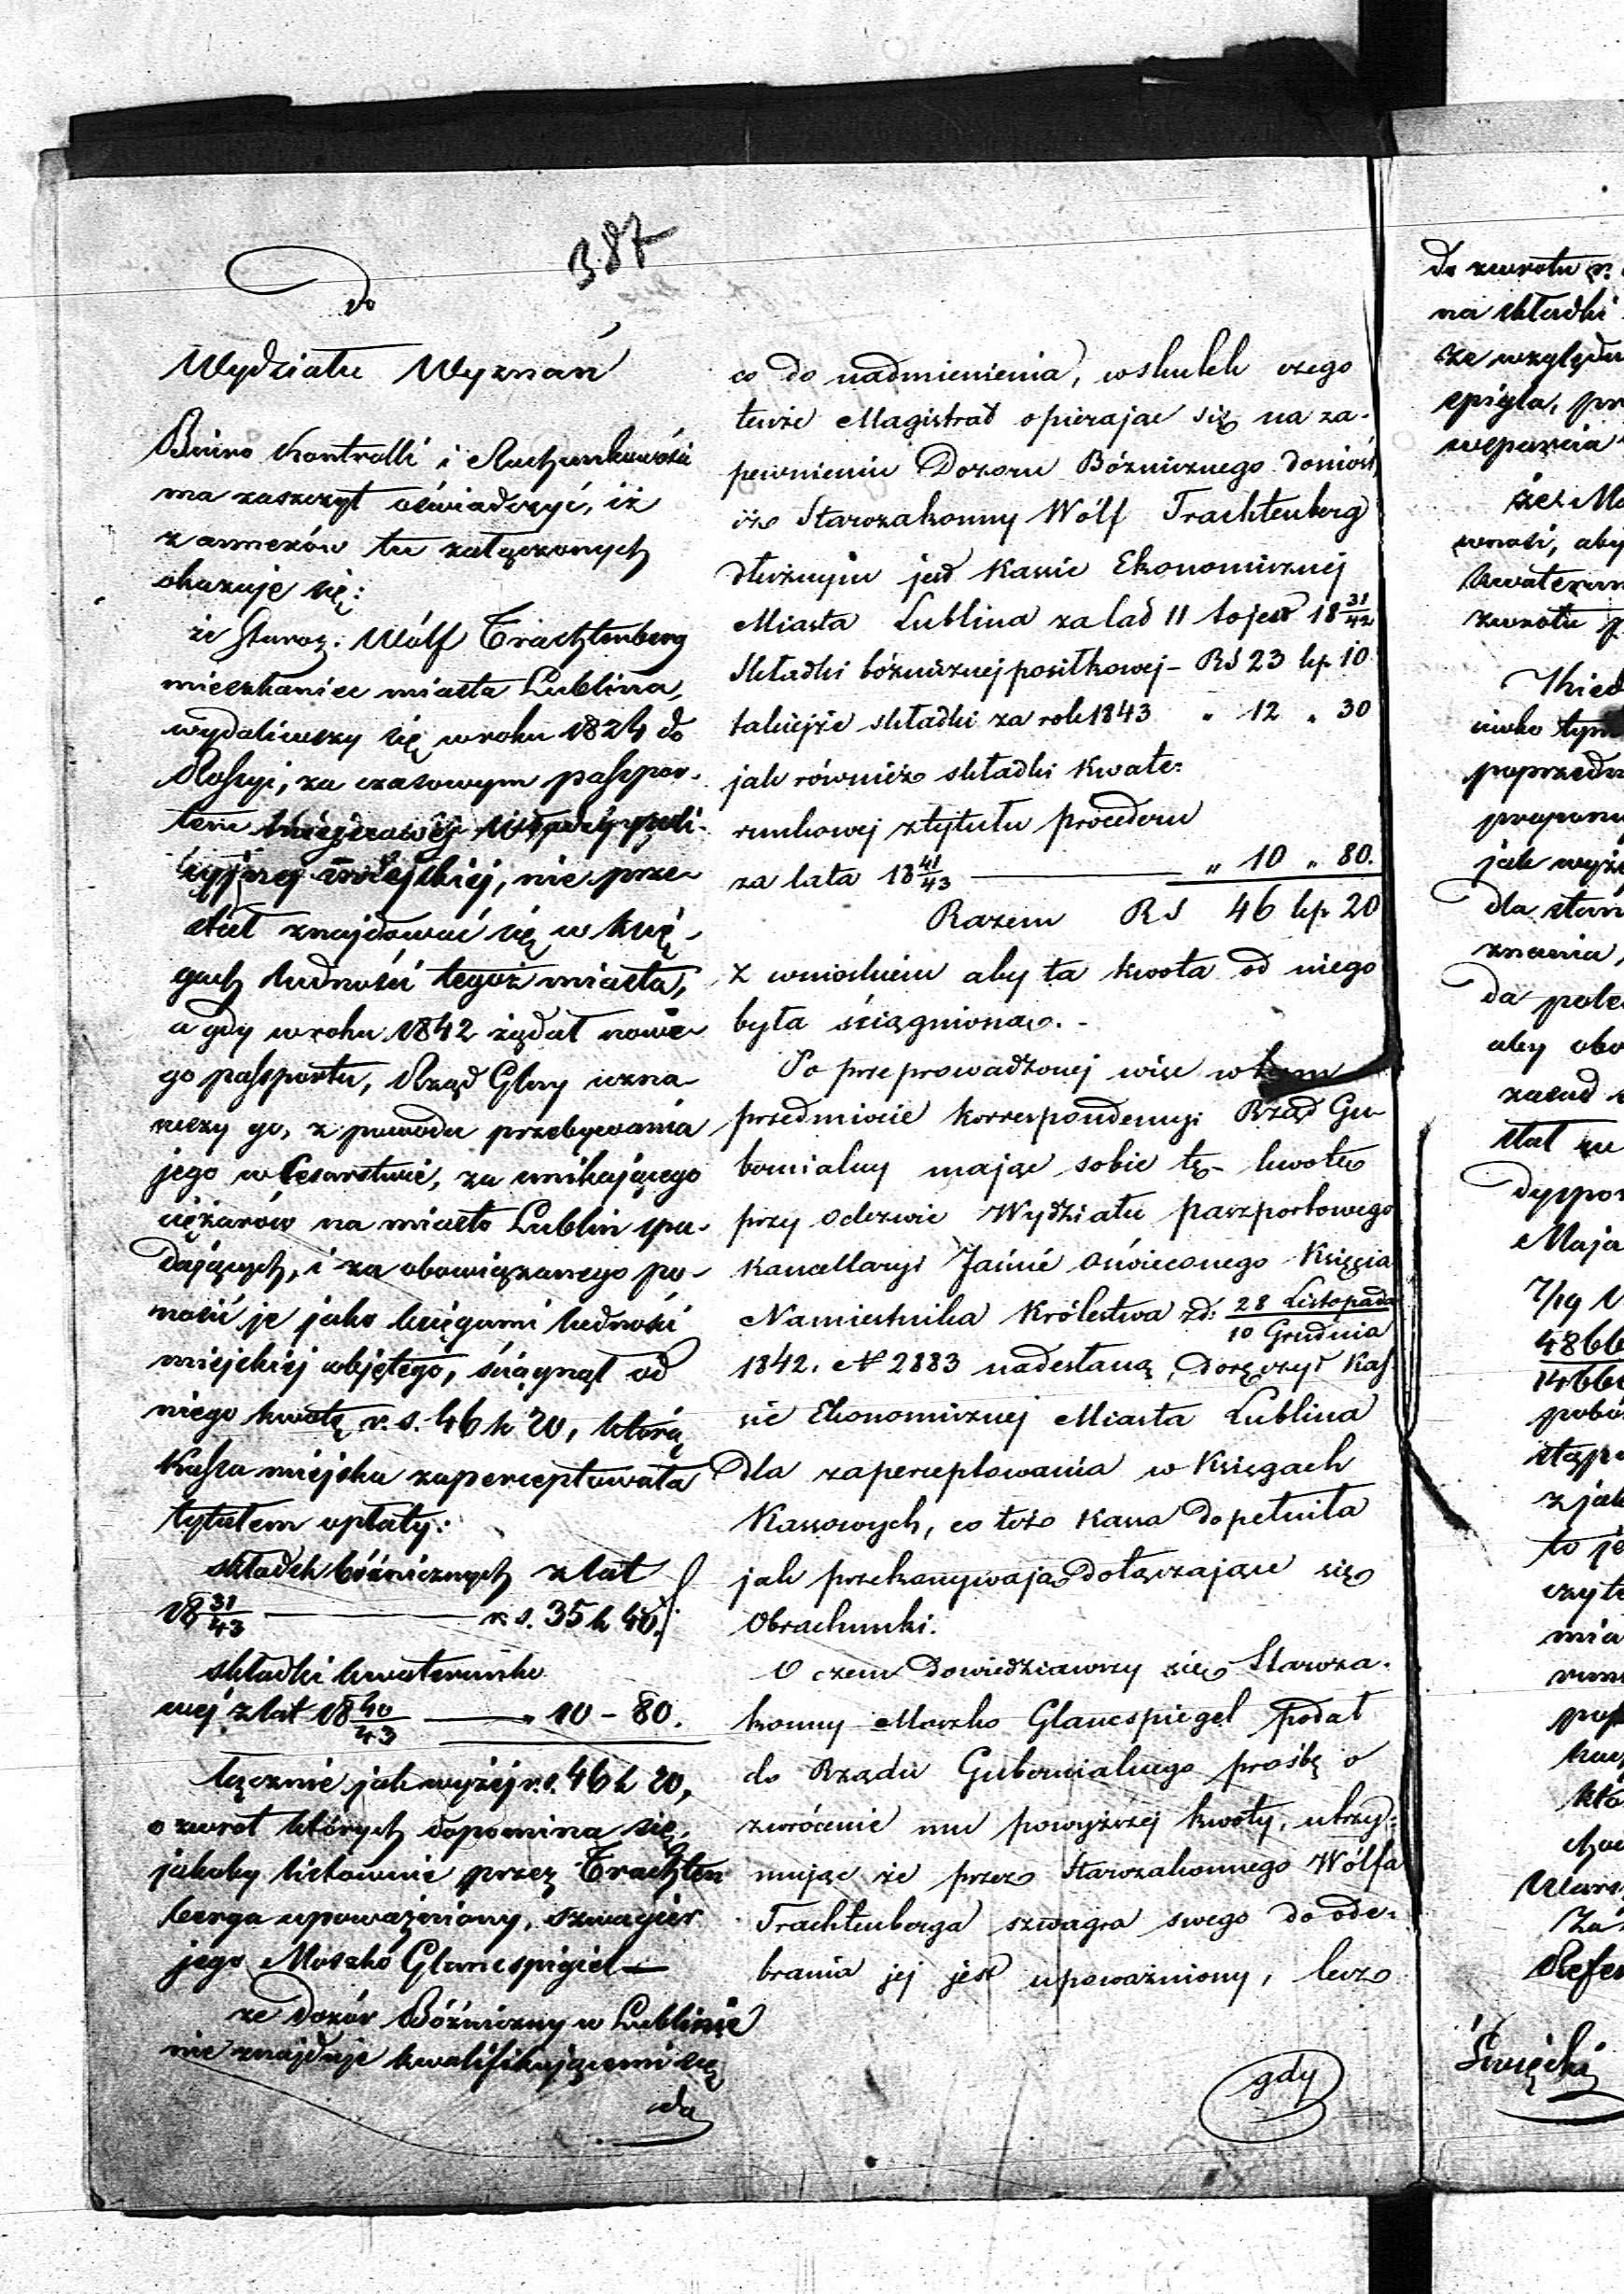 387
Do
Wydziału Wyznań
Biuro Kontrolli i Rachunkowości
ma zaszczyt oświadczyć, iż
z annexów tu załączonych
okazuje się:
że Staroz. Wólf Trachtenberg
mieszkaniec miasta Lublina,
wydaliwszy się w roku 1824 do
Rossyi, za czasowym paszpor-
tem
miejskiej, nie prze-
stał znajdować się w księ-
gach ludności tegoż miasta,
a gdy w roku 1842 żądał nowe-
go paszportu, Rząd Gbny uzna-
wszy go, z powodu przebywania
jego w Cesarstwie, za unikającego
ciężarów na miasto Lublin spa-
dających, i za obowiązanego po-
nosić je jako księgami ludności
miejskiej objętego, ściągnął od
niego kwotę r. s. 46 k 20, którą
Kassa miejska zaperceptowała
tytułem opłaty:
składek bóżnicznych z lat
18 31/43 — r s. 35 k 40.
składki kwaterunko
wej z lat 18 40/43 — „ 10 – 80.
łącznie jak wyżej r. s. 46 k 20,
o zwrot których dopomina się,
jakoby listownie przez Trachten
berga upoważniony, szwagier
jego Moszko Glancspigiel —
że Dozór Bóżniczny w Lublinie
nie znajduje kwalifikującemi się
do
co do nadmienienia, wskutek czego
tenże Magistrat opierając się na za-
pewnieniu Dozoru Bóżnicznego doniósł,
iż Starozakonny Wólf Trachtenberg
dłużnym jest Kassie Ekonomicznej
Miasta Lublina za lat 11 to jest 18 31/42
Składki bóżnicznej posiłkowej – RS 23 kp. 10
takiejże składki za rok 1843 „ 12 „ 30
jak również składki Kwate:
runkowej z tytułu procederu
za lata 18 41/43 — „ 10 „ 80.
Razem RS 46 kp 20
z wnioskiem aby ta kwota od niego
była ściągniona. -
Po przeprowadzonej więc w tym
przedmiocie korrespondencyi Rząd Gu-
bernialny mając sobie tę kwotę
przy Odezwie Wydziału paszportowego
Kancellaryi Jaśnie Oświeconego Księcia
Namiestnika Królestwa z d: 28 Listopada / 10 Grudnia
1842. N 2883 nadesłaną, doręczył Kas
sie Ekonomicznej Miasta Lublina
dla zapercepłowania w Księgach
Kassowych, co też Kassa dopełniła
jak przekonywają dołączające się
Obrachunki.
O czem dowiedziawszy się Staroza-
konny Moszko Glancspiegel podał
do Rządu Gubernialnego prośbę o
zwrócenie mu powyższej kwoty, utrzy-
mując że przez Starozakonnego Wólfa
Trachtenberga szwagra swego do ode-
brania jej jest upoważniony, lecz
gdy
do zwrotu r.
na składki
ze względu
spigla,
wsparcia
że Ma
wnosi, aby
kwaterun
zwrotu
poprzedn
propon
jak wyże
dla
znania,
da pole
aby obo
zasad
stał
dyspo
Maja
7/19
4866
1466
pobó
z jak
to je
mia
Refer
Święcki